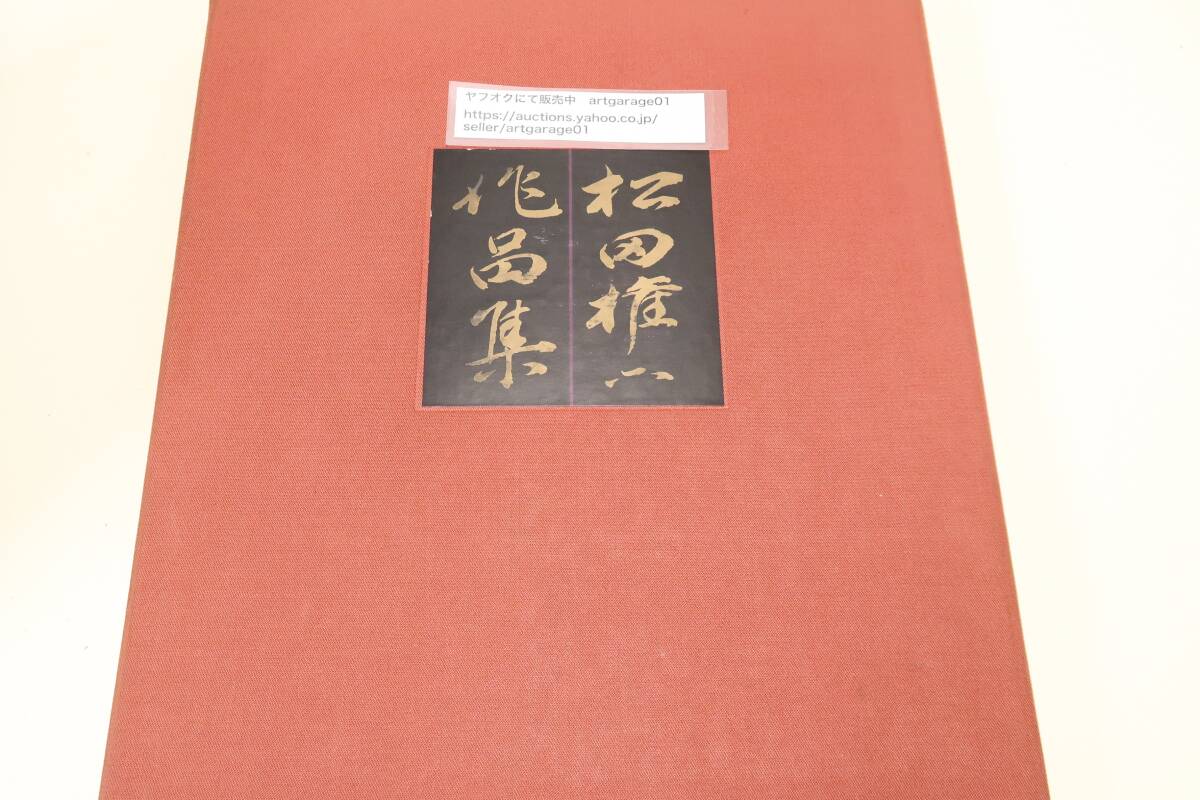 ヤフオクにて販売中　artgarage01
https://auctions.yahoo.co.jp/
seller/artgarage01
松田権六
作品集